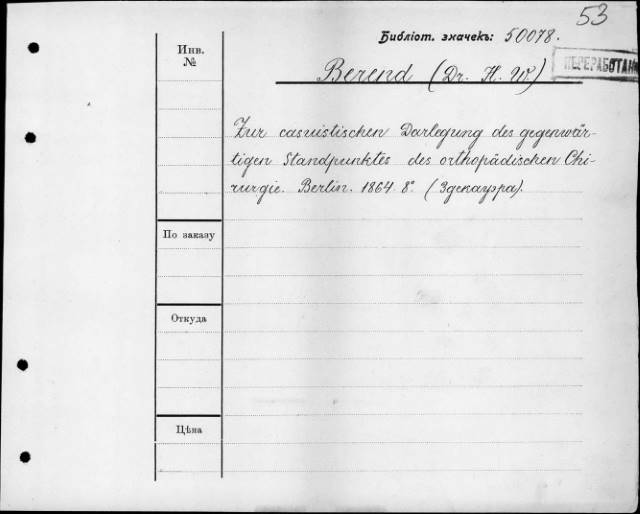 53
Библіот. значекъ: 50078.
ПЕРЕРАБОТАН
Инв.
№
Berend (Dr. H. W.)
Zur casuistischen Darlegung des gegenwär-
tigen Standpunktes des orthopädischen Chi-
rurgie. Berlin. 1864. 8°. (Здекауэра).
По заказу
Откуда
Цѣна